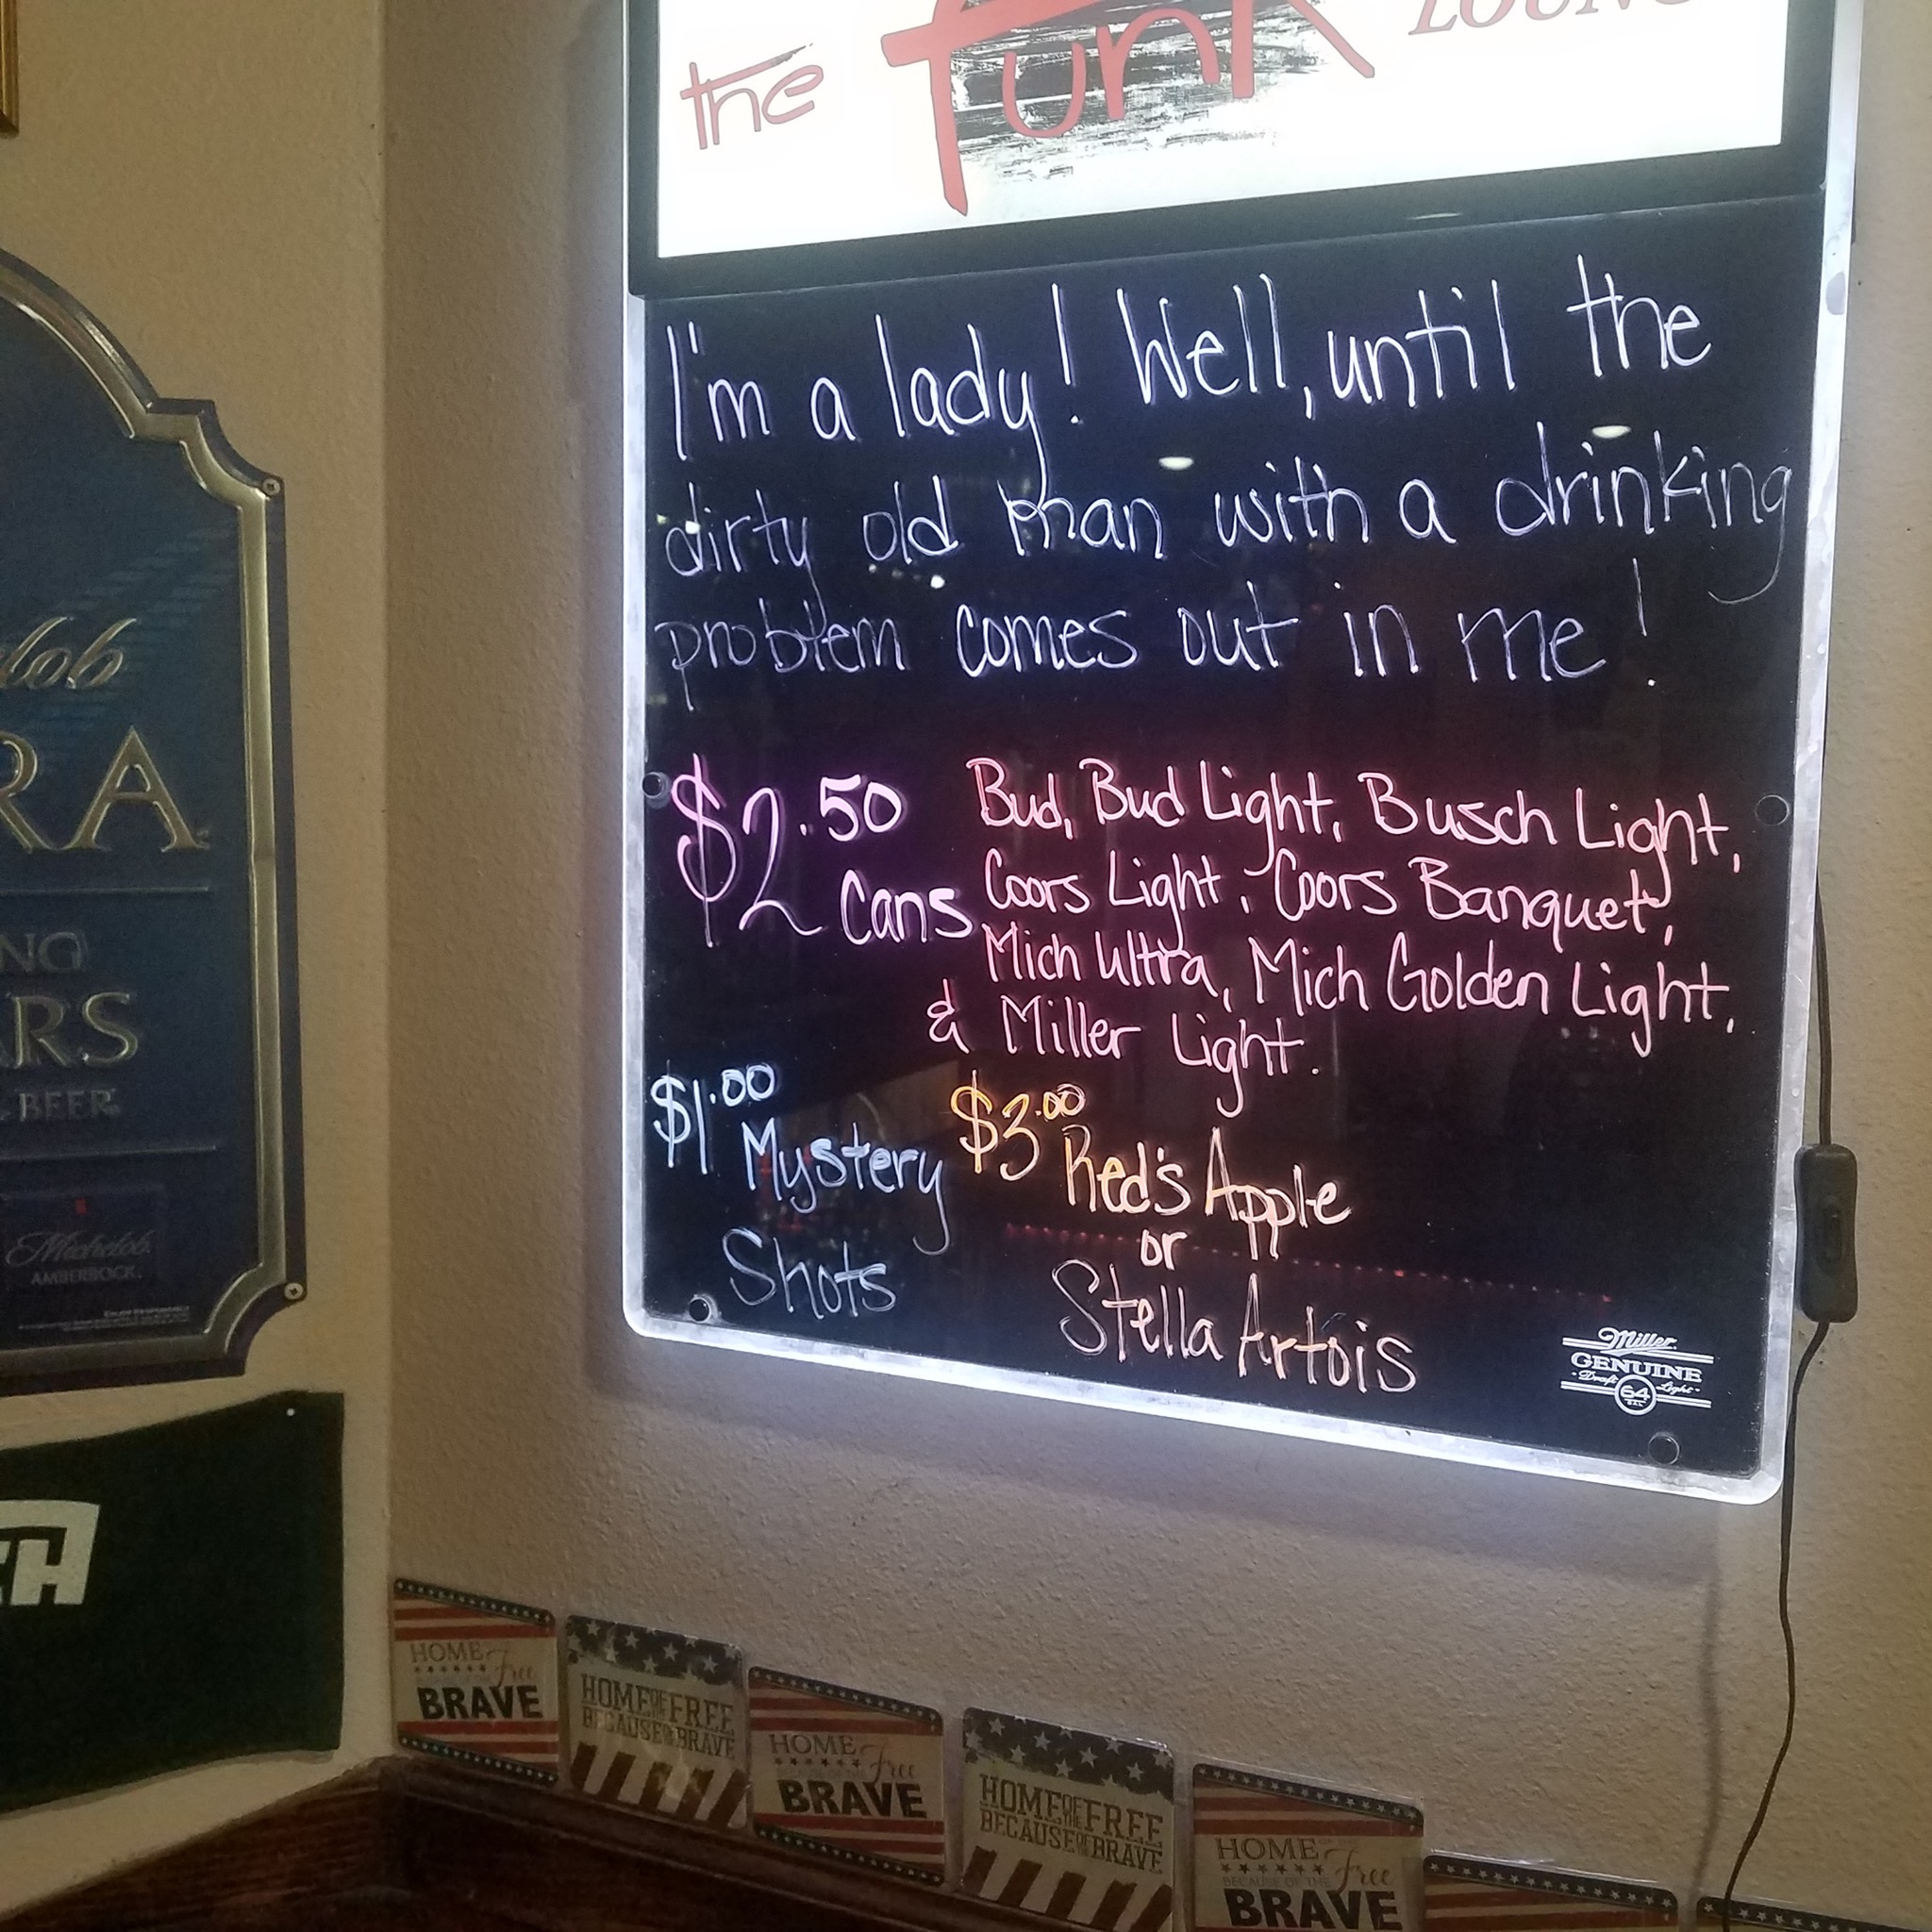 the Funk
I'm a lady! Well, until the
dirty old man with a drinking
problem comes out in me!
$2.50 Cans
Bud, Bud Light, Busch Light,
Coors Light, Coors Banquet,
Mich Ultra, Mich Golden Light,
& Miller Light.
$1.00 Mystery
Shots
$3.00 Red's Apple
or
Stella Artois
Miller
GENUINE
Draft Light
64
CAL
BEER
Michelob
AMBERBOCK
HOME Free
BRAVE
HOME OF THE FREE
BECAUSE OF THE BRAVE
HOME Free
BRAVE
HOME OF THE FREE
BECAUSE OF THE BRAVE
HOME Free
BECAUSE OF THE
BRAVE